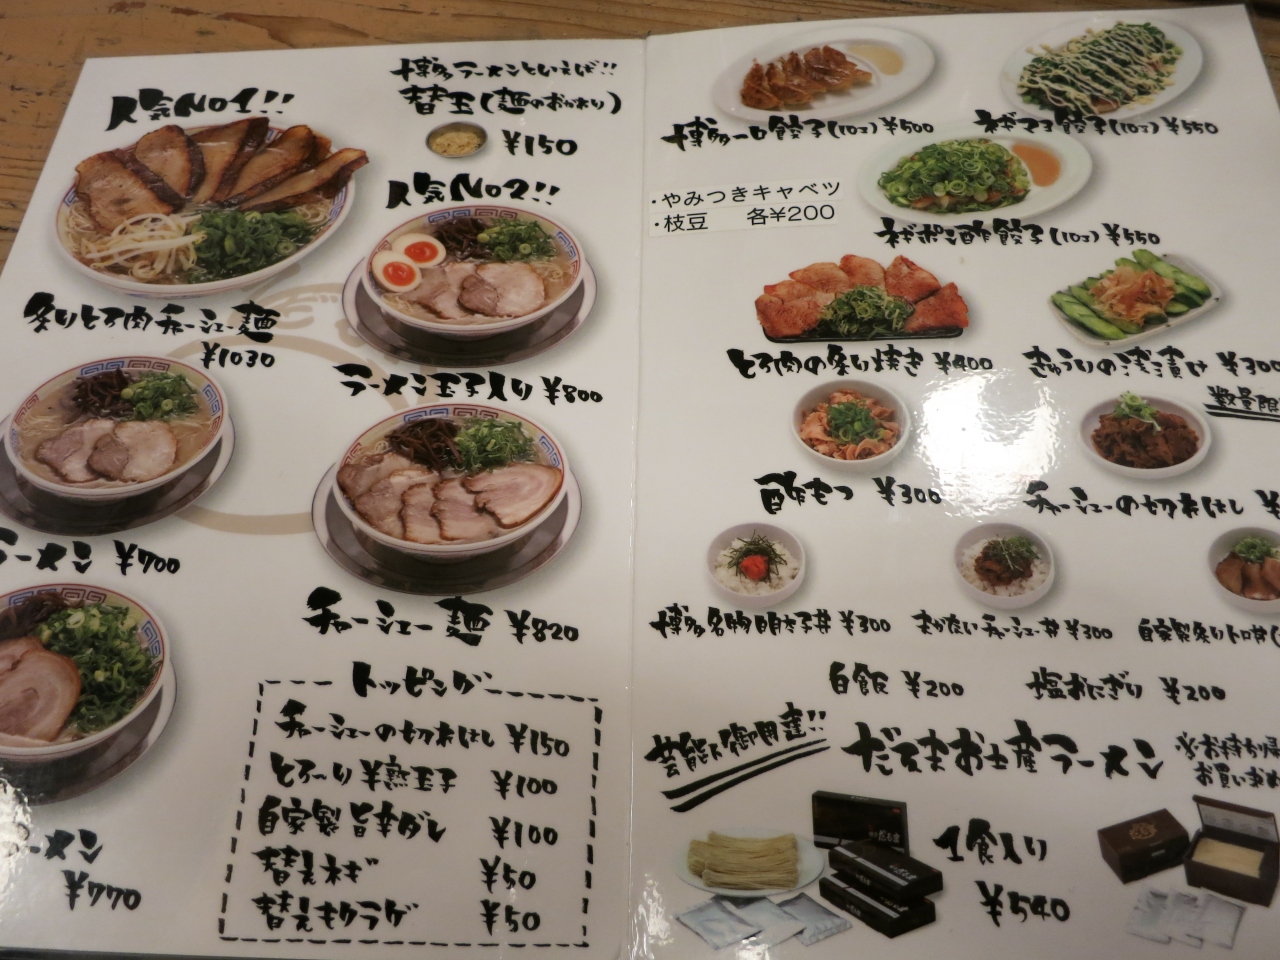 人気No1!!
博多ラーメンといえば!!
替玉(麺のおかわり)
¥150
人気No2!!
炙りとろ肉チャーシュー麺
¥1030
ラーメン玉子入り ¥800
ラーメン ¥700
チャーシュー麺 ¥820
ーメン
¥770
トッピング
チャーシューの切れはし ¥150
とろ〜り半熟玉子 ¥100
自家製旨辛ダレ ¥100
替えネギ ¥50
替えキクラゲ ¥50
博多一口餃子(10コ) ¥500
ネギマヨ餃子(10コ) ¥550
・やみつきキャベツ
・枝豆 各¥200
ネギポン酢餃子(10コ) ¥550
とろ肉の炙り焼き ¥400
きゅうりの浅漬け ¥300
数量限
酢もつ ¥300
チャーシューの切れはし ¥
博多名物明太子丼 ¥300
まかないチャーシュー丼 ¥300
自家製炙りトロ丼(
白飯 ¥200
塩おにぎり ¥200
芸能人御用達!!
だるまお土産ラーメン
※お持ち帰
お買い求め
1食入り
¥540